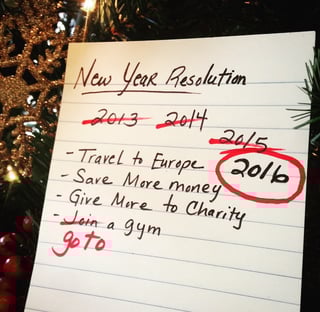 New Year Resolution
2013 2014
2015
2016
- Travel to Europe
- Save More money
- Give More to Charity
- Join a gym
go to